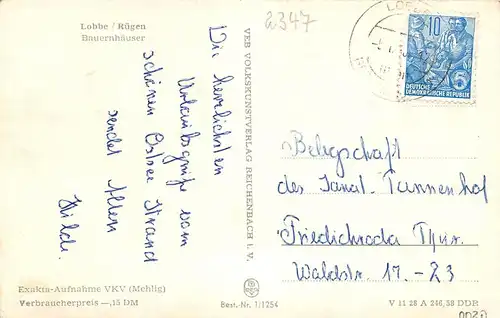 Lobbe / Rügen
Bauernhäuser
2347
LOBBE
10
DEUTSCHE
DEMOKRATISCHE REPUBLIK
Die herzlichsten
Urlaubsgrüße vom
schönen Ostsee Strand
sendet Allen
Hilde.
VEB VOLKSKUNSTVERLAG REICHENBACH i. V.
Belegschaft
des Sanat. Tannenhof
Friedichroda Thür.
Waldstr. 17.-23
Exakta-Aufnahme VKV (Mehlig)
Verbraucherpreis —,15 DM
Best.-Nr. 1/1254
V 11 28 A 246,58 DDR